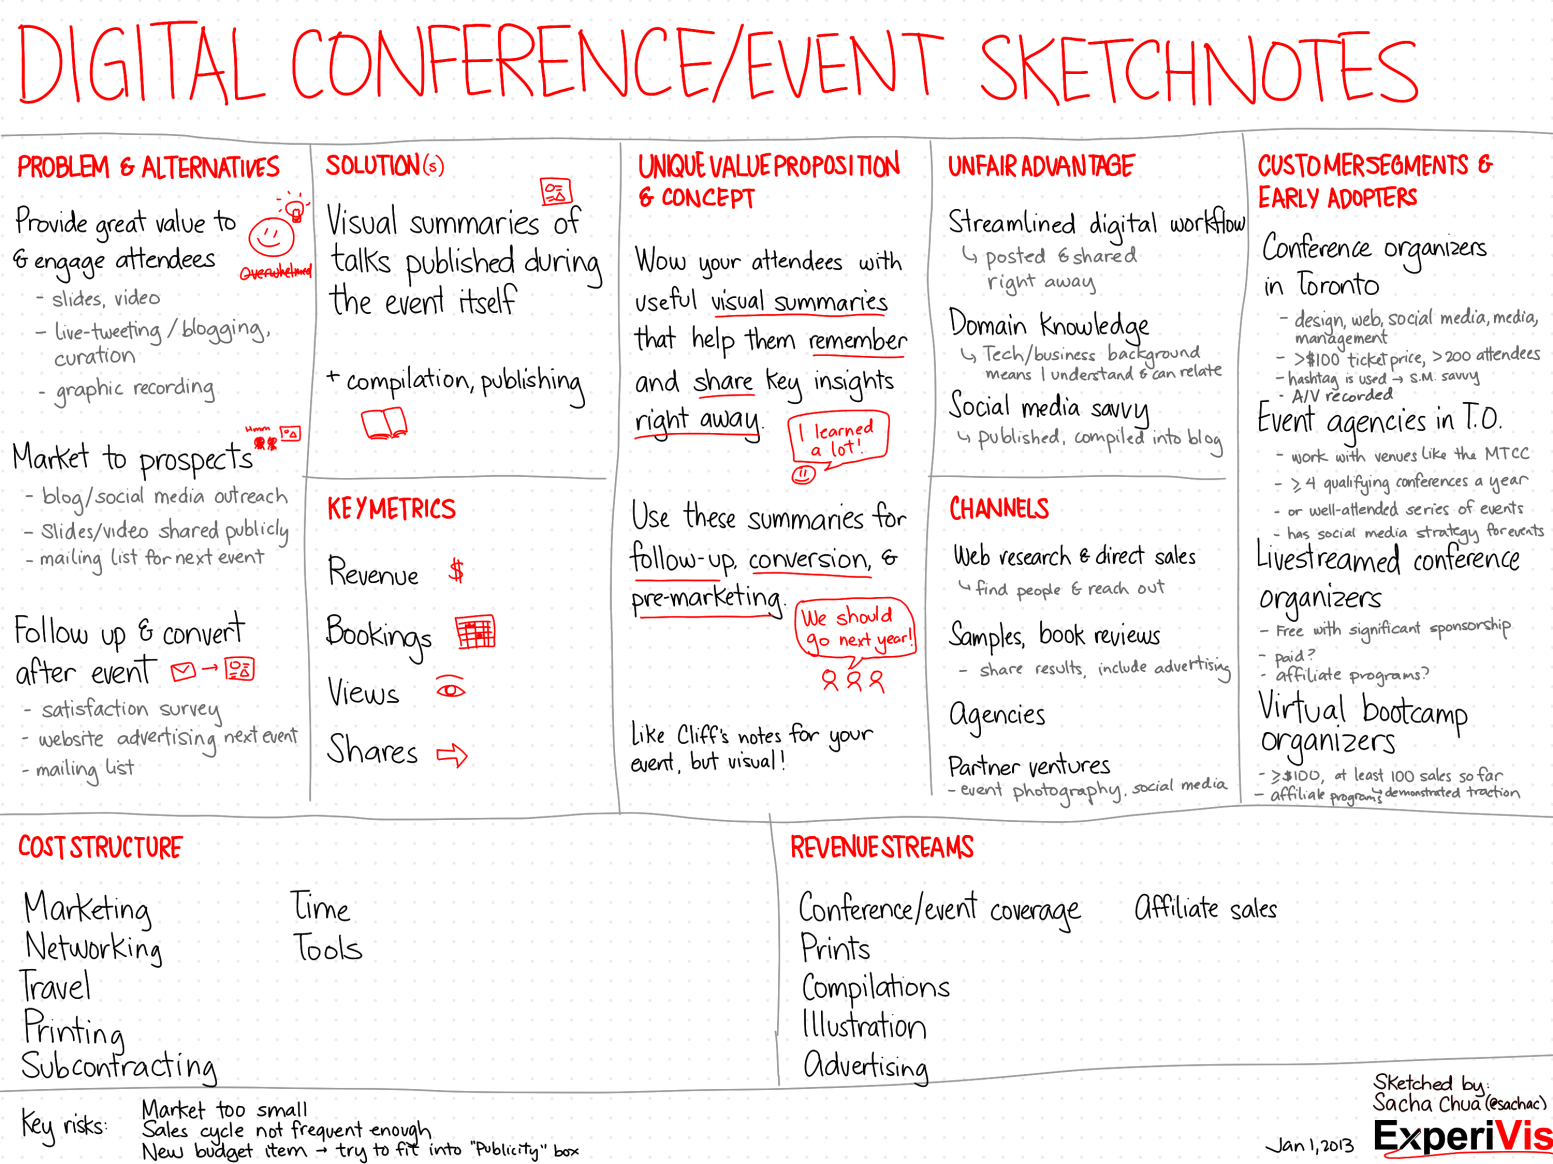 DIGITAL CONFERENCE/EVENT SKETCHNOTES
PROBLEM & ALTERNATIVES
Provide great value to
& engage attendees
Overwhelmed
- slides, video
- live-tweeting / blogging,
curation
- graphic recording
Market to prospects
Hmm
- blog/social media outreach
- Slides/video shared publicly
- mailing list for next event
Follow up & convert
after event
- satisfaction survey
- website advertising next event
- mailing list
SOLUTION(s)
Visual summaries of
talks published during
the event itself
+ compilation, publishing
KEY METRICS
Revenue $
Bookings
Views
Shares
UNIQUE VALUE PROPOSITION
& CONCEPT
Wow your attendees with
useful visual summaries
that help them remember
and share key insights
right away.
I learned
a lot!
Use these summaries for
follow-up, conversion, &
pre-marketing.
We should
go next year!
Like Cliff's notes for your
event, but visual!
UNFAIR ADVANTAGE
Streamlined digital workflow
↳ posted & shared
right away
Domain knowledge
↳ Tech/business background
means I understand & can relate
Social media savvy
↳ published, compiled into blog
CHANNELS
Web research & direct sales
↳ find people & reach out
Samples, book reviews
- share results, include advertising
Agencies
Partner ventures
- event photography, social media
CUSTOMER SEGMENTS &
EARLY ADOPTERS
Conference organizers
in Toronto
- design, web, social media, media,
management
- >$100 ticket price, >200 attendees
- hashtag is used → S.M. savvy
- A/V recorded
Event agencies in T.O.
- work with venues like the MTCC
- ≥4 qualifying conferences a year
- or well-attended series of events
- has social media strategy for events
Livestreamed conference
organizers
- Free with significant sponsorship
- paid?
- affiliate programs?
Virtual bootcamp
organizers
- ≥$100, at least 100 sales so far
- affiliate programs ↳ demonstrated traction
COST STRUCTURE
Marketing
Networking
Travel
Printing
Subcontracting
Time
Tools
REVENUE STREAMS
Conference/event coverage
Prints
Compilations
Illustration
Advertising
Affiliate sales
Key risks:
Market too small
Sales cycle not frequent enough
New budget item → try to fit into "Publicity" box
Jan 1, 2013
Sketched by:
Sacha Chua (@sachac)
ExperiVis